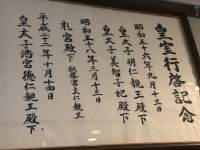 皇室行啓記念
昭和五十六年九月十三日
皇太子明仁親王殿下
皇太子美智子妃殿下
昭和五十八年三月十三日
礼宮殿下 秋篠宮文仁親王
平成二十三年十月十四日
皇太子浩宮徳仁親王殿下